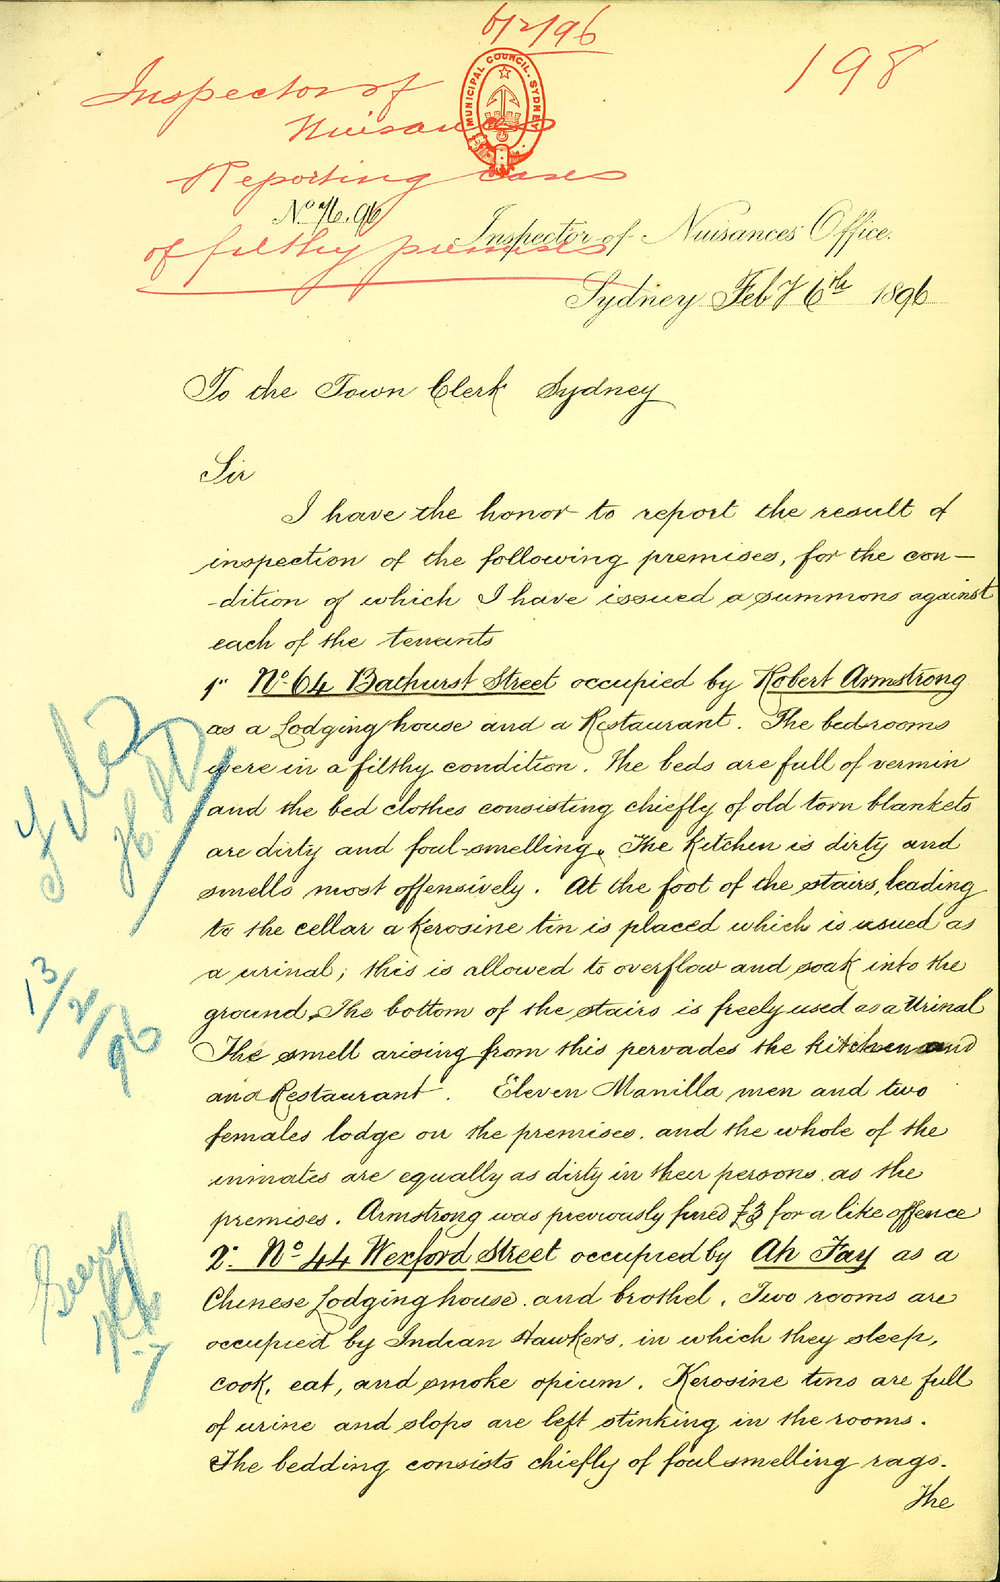 6/2/96
198
Inspector of
Nuisances
Reporting cases
of filthy premises
MUNICIPAL COUNCIL. SYDNEY
No 76.96
Inspector of Nuisances Office.
Sydney Feby 6th 1896
To the Town Clerk Sydney
Sir
I have the honor to report the result of
inspection of the following premises, for the con-
-dition of which I have issued a summons against
each of the tenants
1" No 64 Bathurst Street occupied by Robert Armstrong
as a Lodging house and a Restaurant. The bedrooms
were in a filthy condition. The beds are full of vermin
and the bed clothes consisting chiefly of old torn blankets
are dirty and foul-smelling. The Kitchen is dirty and
smells most offensively. At the foot of the stairs, leading
to the cellar a Kerosine tin is placed which is used as
a urinal; this is allowed to overflow and soak into the
ground. The bottom of the stairs is freely used as a Urinal
The smell arising from this pervades the kitchen and
and Restaurant. Eleven Manilla men and two
females lodge on the premises. and the whole of the
inmates are equally as dirty in their persons as the
premises. Armstrong was previously fined £3 for a like offence
2. No 44 Wexford Street occupied by Ah Fay as a
Chinese Lodging house. and brothel. Two rooms are
occupied by Indian Hawkers, in which they sleep,
cook, eat, and smoke opium. Kerosine tins are full
of urine and slops are left stinking in the rooms.
The bedding consists chiefly of foul smelling rags.
The
File
13/2/96
Seen